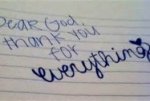 Dear God
thank you
for
everything